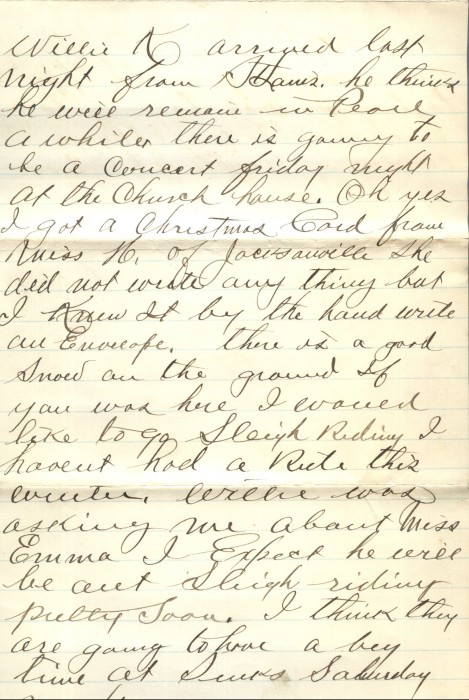 Willie K arrived last
night from he thinks
he will remain in Pearl
awhile, there is gowing to
be a Concert friday night
at the Church house. Oh yes
I got a Christmas Card from
Miss H. of Jacksonville She
did not write any thing but
I Knew It by the hand write
on Envelope. there is a good
Snow on the ground If
you was here I would
like to go Sleigh Riding I
havent had a Ride this
winter. Willie was
asking me about Miss
Emma I Expect he will
be out Sleigh riding
pretty Soon. I think they
are going to have a big
time at Saturday